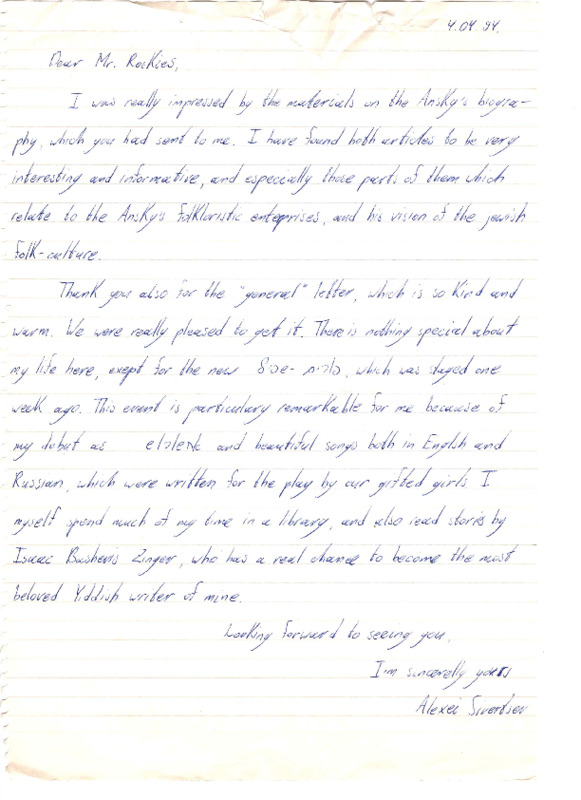 4.04.94.
Dear Mr. Roskies,
I was really impressed by the materials on the AnSky's biogra-
phy, which you had sent to me. I have found both articles to be very
interesting and informative, and especially those parts of them which
relate to the AnSky's folkloristic enteprises, and his vision of the jewish
folk-culture.
Thank you also for the "general" letter, which is so kind and
warm. We were really pleased to get it. There is nothing special about
my life here, exept for the new פורים-שפיל, which was staged one
week ago. This event is particulary remarkable for me because of
my debut as אחשורוש and beautiful songs both in English and
Russian, which were written for the play by our gifted girls. I
myself spend much of my time in a library, and also read stories by
Isaac Bashevis Zinger, who has a real chance to become the most
beloved Yiddish writer of mine.
Looking forward to seeing you.
I'm sincerelly yours
Alexei Sivertsev